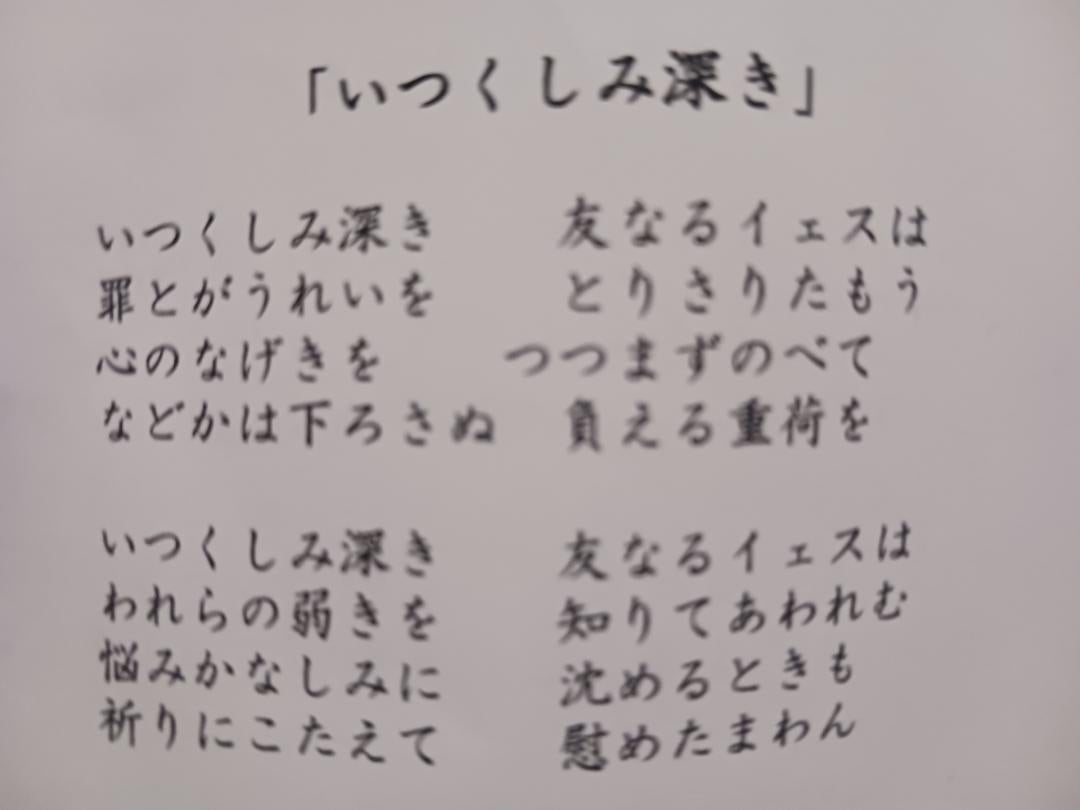 「いつくしみ深き」
いつくしみ深き　友なるイェスは
罪とがうれいを　とりさりたもう
心のなげきを　つつまずのべて
などかは下ろさぬ　負える重荷を
いつくしみ深き　友なるイェスは
われらの弱きを　知りてあわれむ
悩みかなしみに　沈めるときも
祈りにこたえて　慰めたまわん